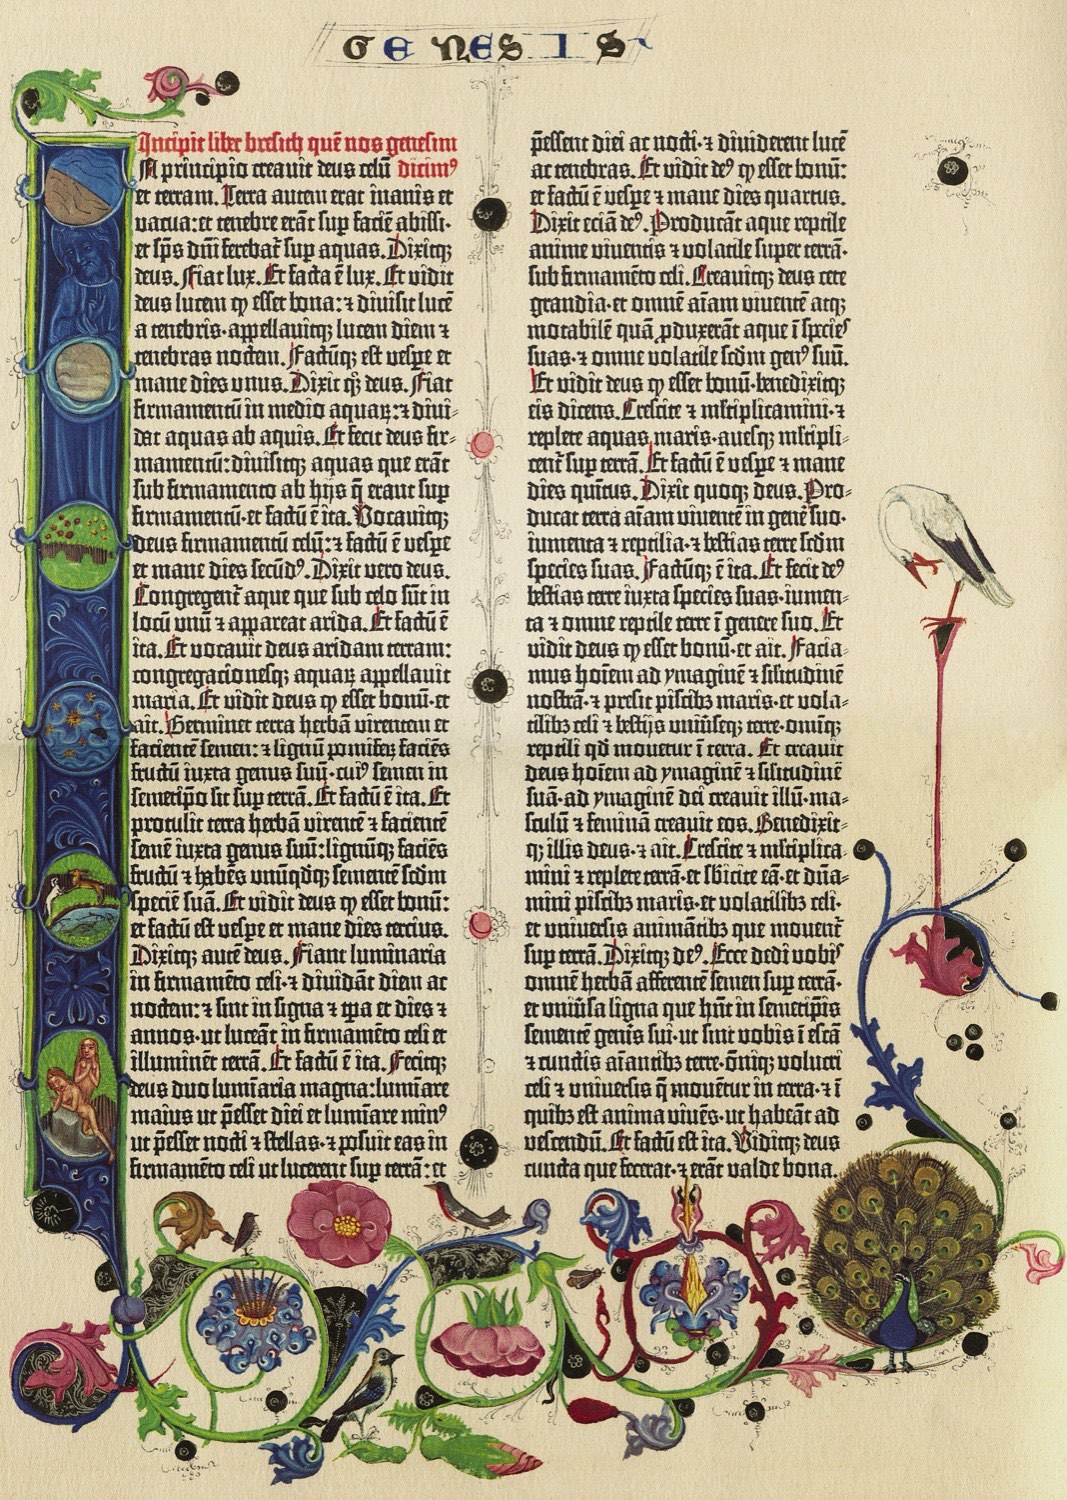 GENESIS
Incipit liber bresith quē nos genesim
A principio creauit deus celū dicimꝰ
et terram. Terra autem erat inanis et
vacua: et tenebre erāt sup faciē abissi·
et sp̄s dn̄i ferebat᷑ sup aquas. Dixitqꝫ
deus. Fiat lux. Et facta ē lux. Et vidit
deus lucem ꝙ esset bona: ⁊ diuisit lucē
a tenebris·appellauitqꝫ lucem diem ⁊
tenebras noctem. Factūqꝫ est vespe et
mane dies vnus. Dixit qꝫ deus. Fiat
firmamentū in medio aquaꝝ: ⁊ diui-
dat aquas ab aquis. Et fecit deus fir-
mamentū: diuisitqꝫ aquas que erāt
sub firmamento ab hijs q̄ erant sup
firmamentū·et factū ē ita. Vocauitqꝫ
deus firmamentū celū: ⁊ factū ē vespe
et mane dies secūdꝰ. Dixit vero deus.
Congregent᷑ aque que sub celo sūt in
locū vnū ⁊ appareat arida. Et factū ē
ita. Et vocauit deus aridam terram:
congregacionesqꝫ aquaꝝ appellauit
maria. Et vidit deus ꝙ esset bonū·et
ait. Germinet terra herbā virentem et
facientē semen: ⁊ lignū pomifeꝝ faciēs
fructū iuxta genus suū·cuiꝰ semen in
semetipo sit sup terrā. Et factū ē ita. Et
protulit terra herbā virentē ⁊ facientē
semē iuxta genus suū: lignūqꝫ faciēs
fructū ⁊ habēs vnūqdqꝫ sementē scdm
speciē suā. Et vidit deus ꝙ esset bonū:
et factū est vespe et mane dies tercius.
Dixitqꝫ autē deus. Fiant luminaria
in firmamēto celi·⁊ diuidāt diem ac
noctem: ⁊ sint in signa ⁊ tpa et dies ⁊
annos·ut luceāt in firmamēto celi et
illuminēt terrā. Et factū ē ita. Fecitqꝫ
deus duo lumīaria magna: lumīare
maius ut p̄esset diei et lumīare minꝰ
ut p̄esset nocti ⁊ stellas·⁊ posuit eas in
firmamēto celi ut lucerent sup terrā: et
p̄essent diei ac nocti·⁊ diuiderent lucē
ac tenebras. Et vidit deꝰ ꝙ esset bonū:
et factū ē vespe ⁊ mane dies quartus.
Dixit eciā deꝰ. Producāt aque reptile
anime viuentis ⁊ volatile super terrā·
sub firmamēto celi. Creauitqꝫ deus cete
grandia·et omnē aīam viuentē atqꝫ
motabilē quā ꝓduxerāt aque ī species
suas·⁊ omne volatile scdm genꝰ suū.
Et vidit deus ꝙ esset bonū·benedixitqꝫ
eis dicens. Crescite ⁊ mltiplicamini·⁊
replete aquas maris·auesqꝫ mltipli-
cent᷑ sup terrā. Et factū ē vespe ⁊ mane
dies quītus. Dixit quoqꝫ deus. Pro-
ducat terra aīam viuentē in genē suo·
iumenta ⁊ reptilia·⁊ bestias terre scdm
species suas. Factūqꝫ ē ita. Et fecit deꝰ
bestias terre iuxta species suas·iumen-
ta ⁊ omne reptile terre ī genere suo. Et
vidit deus ꝙ esset bonū·et ait. Facia-
mus hoīem ad ymaginē ⁊ silitudinē
nostrā·⁊ presit piscibꝫ maris·et vola-
tilibꝫ celi ⁊ bestijs vniūseqꝫ terre·omīqꝫ
reptili qd mouetur ī terra. Et creauit
deus hoīem ad ymaginē ⁊ silitudinē
suā·ad ymaginē dei creauit illū·ma-
sculū ⁊ feminā creauit eos. Benedixit-
qꝫ illis deus·⁊ ait. Crescite ⁊ mltiplica-
mini ⁊ replete terrā·et sbicite eā·et dn̄a-
mini piscibꝫ maris·et volatilibꝫ celi·
et vniuersis animātibꝫ que mouent᷑
sup terrā. Dixitqꝫ deꝰ. Ecce dedi vobis
omnē herbā afferentē semen sup terrā·
et vniūsa ligna que hn̄t in semetipis
sementē genis sui·ut sint vobis ī escā
⁊ cunctis aīantibꝫ terre·ōniqꝫ volucri
celi ⁊ vniuersis q̄ mouētur in terra·⁊ ī
quibꝫ est anima viuēs·ut habeāt ad
vescendū. Et factū est ita. Viditqꝫ deus
cuncta que fecerat·⁊ erāt valde bona.